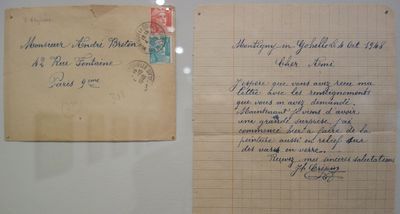 Monsieur André Breton
42 Rue Fontaine
Paris 9ème
Montigny en Gohelle le 4 Oct 1948
Cher Ami
J'espère que vous avez reçu ma
lettre avec les renseignements
que vous m avez demandé.
Maintenant je viens d'avoir
une grande surprise j'ai
commencé hier à faire de la
peinture aussi en relief sur
des vases en verre.
Recevez mes sincères salutations
Jh Crépin